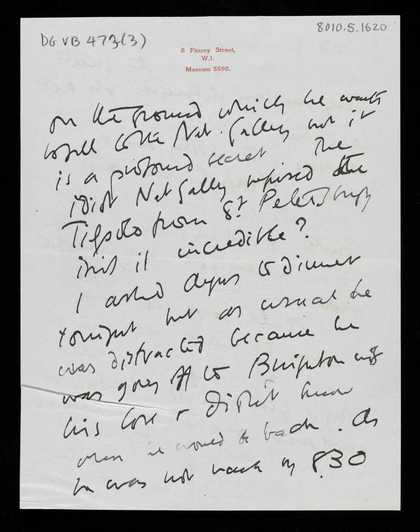 DG VB 473(3)
8010.5.1620
8 Fitzroy Street,
W.1.
Museum 5690.
on the ground which he wants
to sell to the Nat. Gallery but it
is a profound secret The
idiot Nat Gallery refused the
Tiepolo from St Petersburg
isn't it incredible?
I asked to dinner
tonight but as usual he
was distracted because he
was going off to Brighton with
his love & didn't know
when he would be back. As
he was not back by 8.30